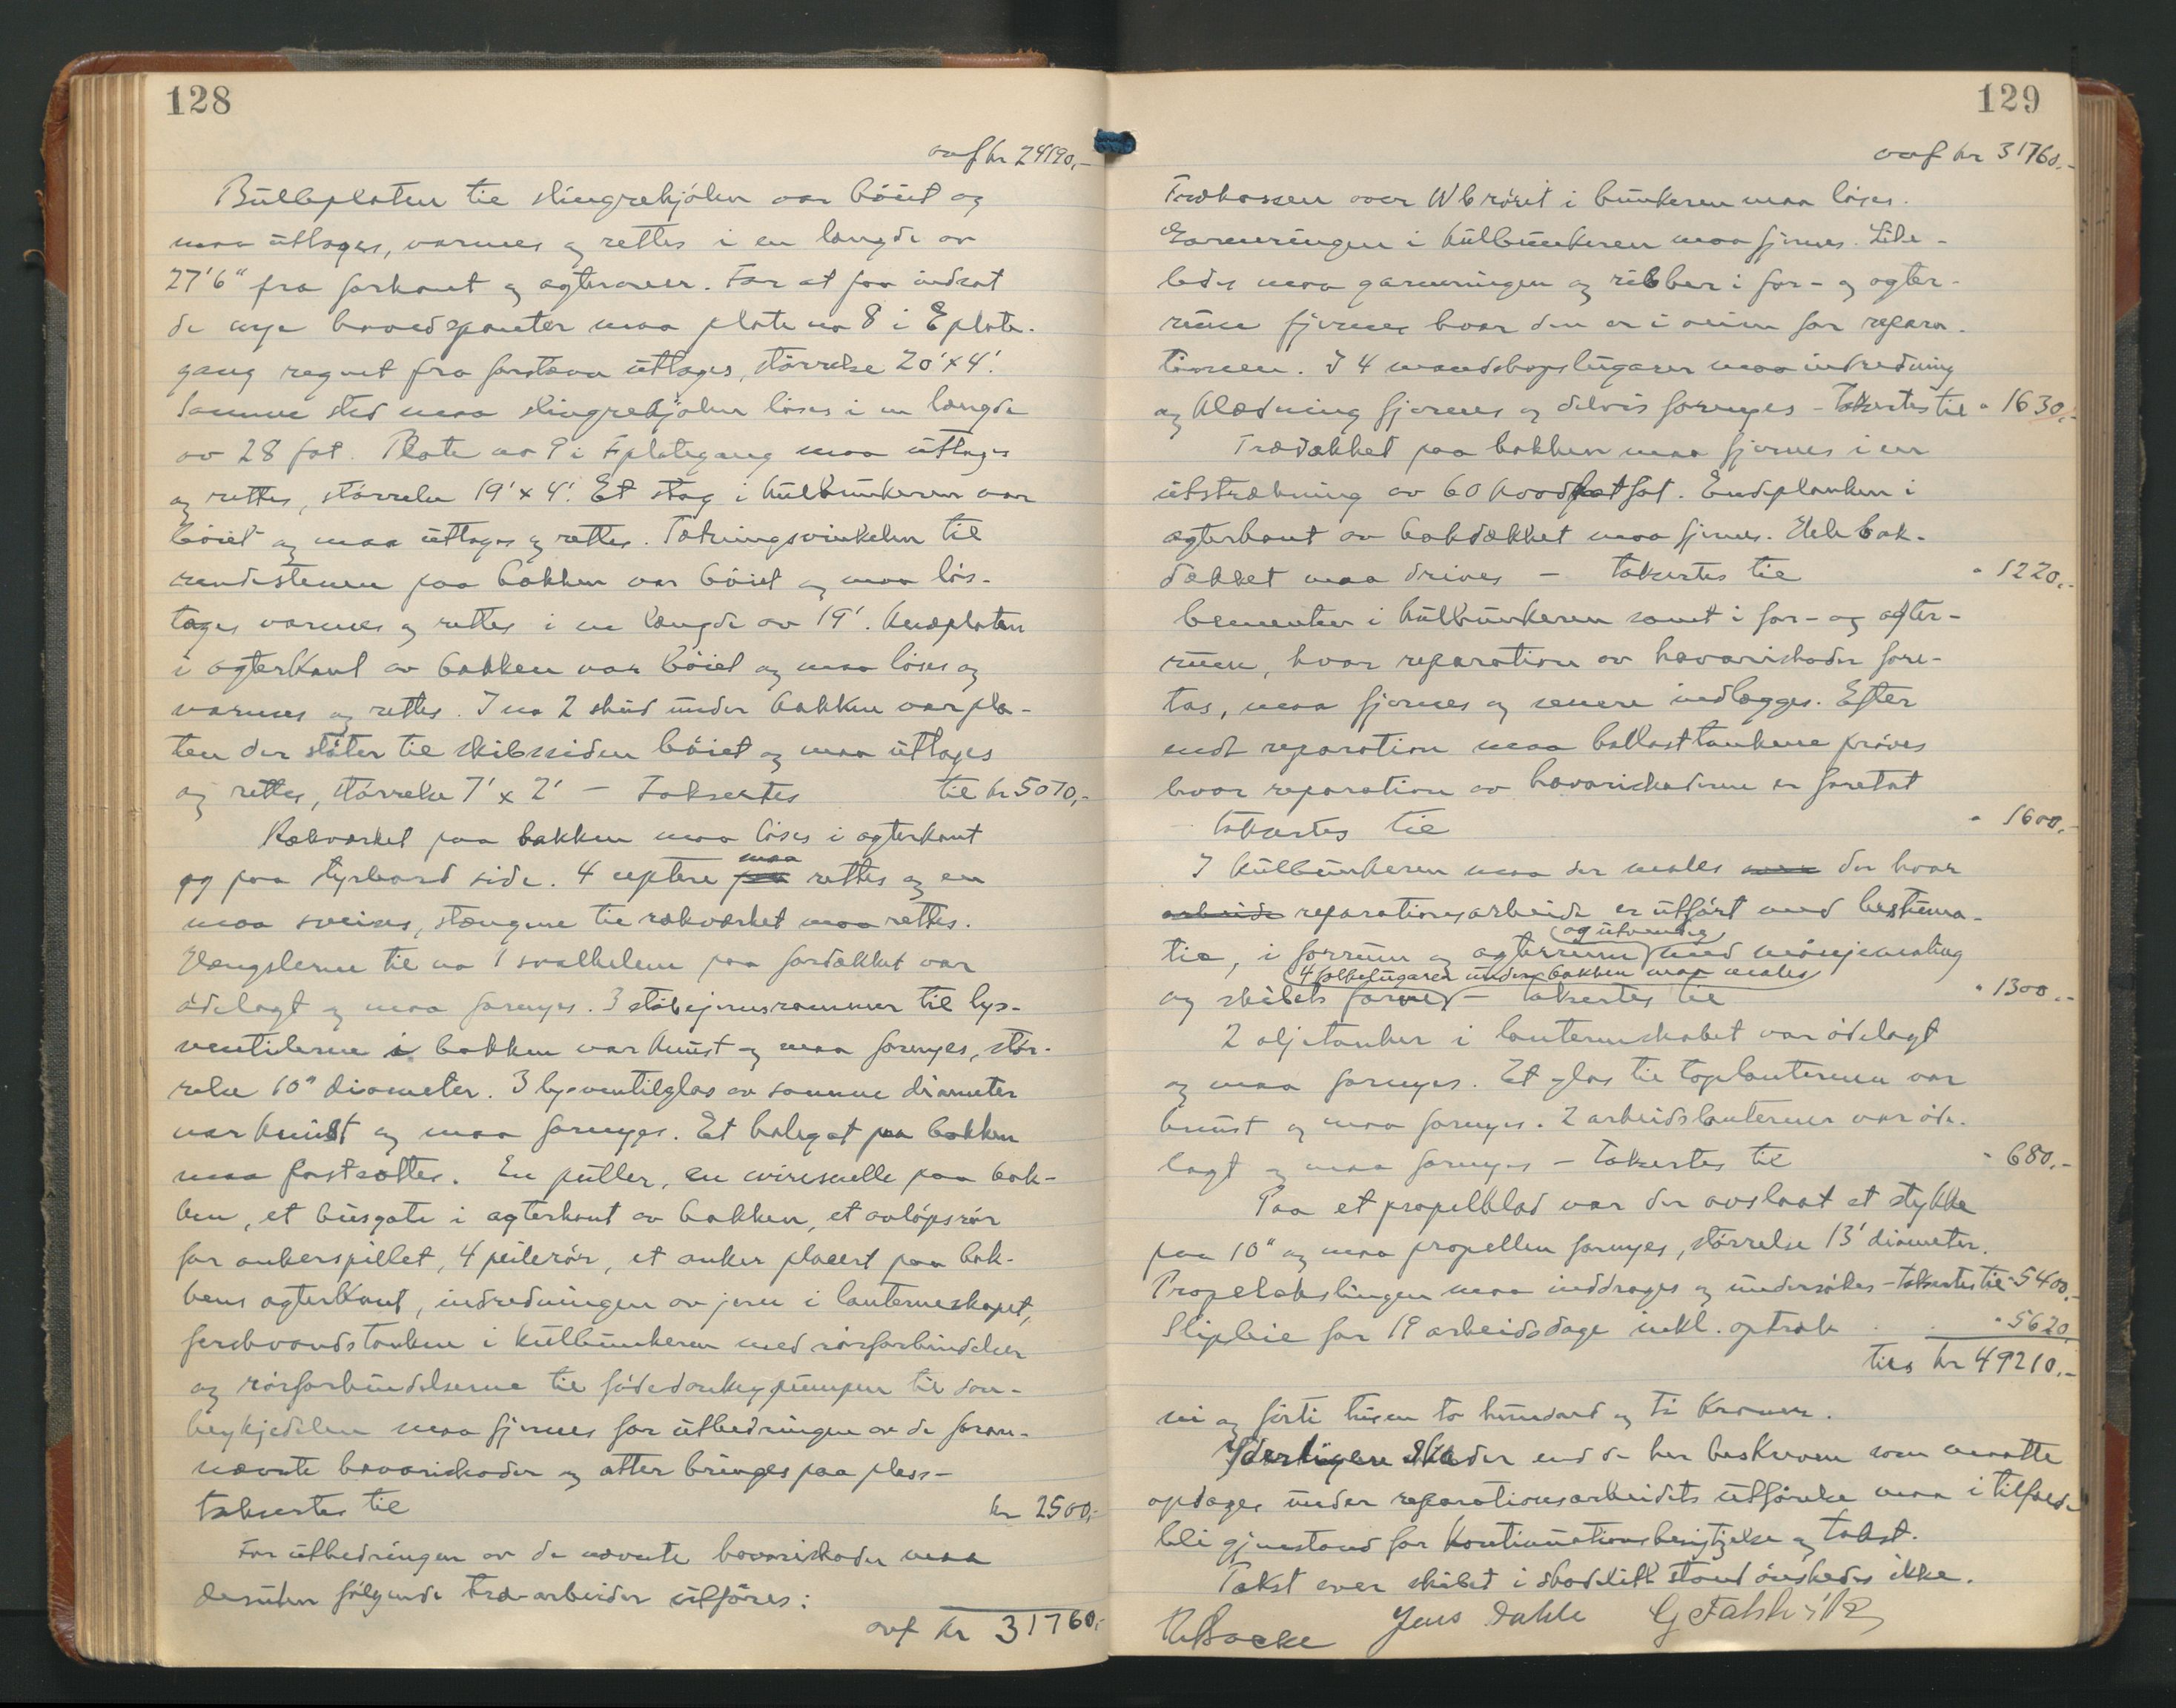 128
ovf kr 24190,-
Bulbplaten til slingrekjölen var böiet og
maa uttages, varmes og rettes i en længde av
27'6" fra forkant og agterover. For at faa indsat
de nye baandspanter maa plate no 8 i E plate-
gang regnet fra forstævn uttages, störrelse 20' x 4'.
Samme sted maa slingrekjölen löses i en længde
av 28 fot. Plate no 9 i F plategang maa uttages
og rettes, störrelse 19' x 4'. Et stag i kulbunkeren var
böiet og maa uttages og rettes. Tætningsvinkelen til
rendestenen paa bakken var böiet og maa lös-
tages varmes og rettes i en længde av 19'. Knæplaten
i agterkant av bakken var böiet og maa löses og
varmes og rettes. I no 2 skud under bakken var pla-
ten der stöter til skibssiden böiet og maa uttages
og rettes, störrelse 7' x 2' - Taksertes til kr 5070,-
Rækverket paa bakken maa löses i agterkant
og paa styrbord side. 4 septere maa rettes og en
maa sveises, stængene til rækverket maa rettes.
Hængslerne til no 1 svalhelem paa fordækket var
ödelagt og maa fornyes. 3 stöbejernsrammer til lys-
ventilerne i bakken var knust og maa fornyes, stör-
relse 10" diameter. 3 lysventilglas av samme diameter
var knust og maa fornyes. Et halegat paa bakken
maa fastsættes. En puller, en wiresnelle paa bak-
ken, et büsgate i agterkant av bakken, et avlöpsrör
for ankerspillet, 4 peilerör, et anker placert paa bak-
kens agterkant, indredningen av jern i lanterneskapet,
ferskvandstanken i kulbunkeren med rörforbindelser
og rörforbindelserne til födedonkeypumpen til don-
keykjedelen maa fjernes for utbedringen av de foran-
nævnte havariskader og atter bringes paa plass -
taksertes til kr 2500,-
For utbedringen av de nævnte havariskader maa
desuten fölgende træ-arbeider utföres:
ovf kr 31760,-
129
ovf kr 31760,-
Trækassen over W b röret i bunkeren maa löses.
Garneringen i kulbunkeren maa fjernes. Like-
ledes maa garneringen og ribber i for- og agter-
rum fjernes hvor den er i veien for repara-
tionen. I 4 mandskapslugarer maa indredning
og klædning fjernes og delvis fornyes - Taksertes til " 1630,-
Trædækket paa bakken maa fjernes i en
utstrækning av 60 kvadratfot. Endeplanken i
agterkant av bakdækket maa fjernes. Hele bak-
dækket maa drives - taksertes til " 1220,-
Cementen i kulbunkeren samt i for- og agter-
rum, hvor reparation av havariskader fore-
tas, maa fjernes og senere indlægges. Efter
endt reparation maa ballasttankene pröves
hvor reparation av havariskaderne er foretat
taksertes til " 1600,-
I kulbunkeren maa der males der hvor
arbeide reparationsarbeide er utfört med bestuma-
tie, i forrum og agterrum og utvendig med mönjemaling
og skibets farve - 4 folkelugarer under bakken maa males taksertes til " 1300,-
2 oljetanker i lanterneskabet var ödelagt
og maa fornyes. Et glas til toplanternen var
knust og maa fornyes. 2 arbeidslanterner var öde-
lagt og maa fornyes - taksertes til " 680,-
Paa et propelblad var der avslaat et stykke
paa 10" og maa propellen fornyes, störrelse 13' diameter.
Propelakslingen maa inddrages og undersökes - taksertes til " 5400,-
Slipleie for 19 arbeidsdage inkl. optræk " 5620,
tils kr 49210,-
ni og förti tusen to hundred og ti Kroner.
Yderligere skader end de her beskrevne som maatte
opdages under reparationsarbeidets utförelse maa i tilfælde
bli gjenstand for Kontinuationsbesigtjelse og takst.
Takst over skibet i skadelidt stand önskedes ikke.
Jens Dahle